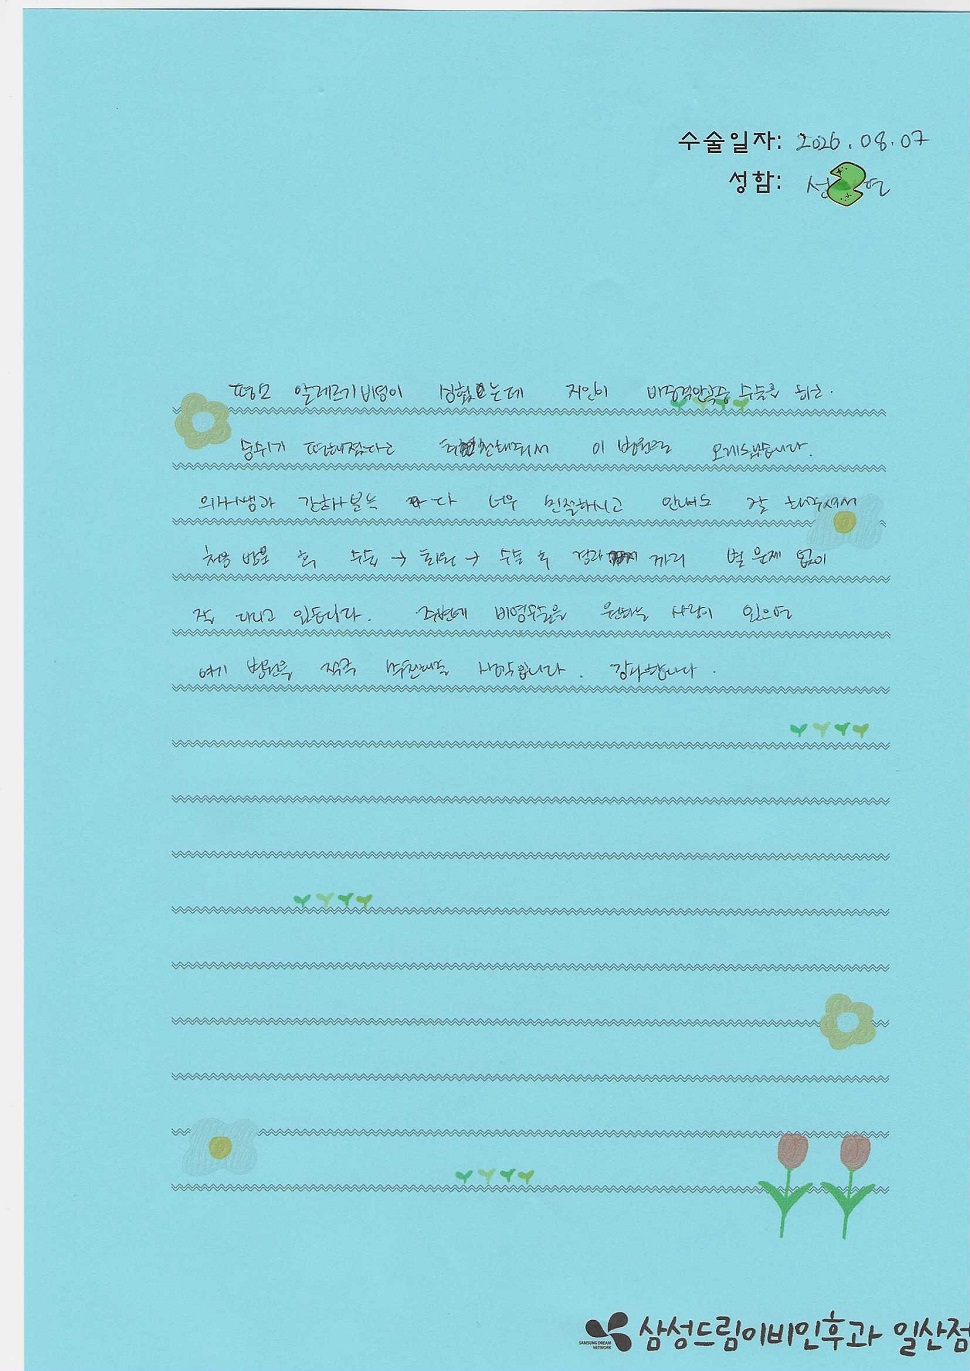 수술일자: 2026.08.07
성함: 성 연
평소 알레르기비염이 심했는데 지인이 비중격만곡증 수술을 하고.
숨쉬기 편해졌다고 추천해줘서 이 병원으로 오게되었습니다.
의사쌤과 간호사분들 다 너무 친절하시고 안내도 잘 해주셔서
처음 방문 후 수술 → 퇴원 → 수술 후 경과 까지 별 문제 없이
잘 다니고 있습니다. 주변에 비염수술을 원하는 사람이 있으면
여기 병원을 적극 추천해줄 생각입니다. 감사합니다.
SAMSUNG DREAM NETWORK
삼성드림이비인후과 일산점